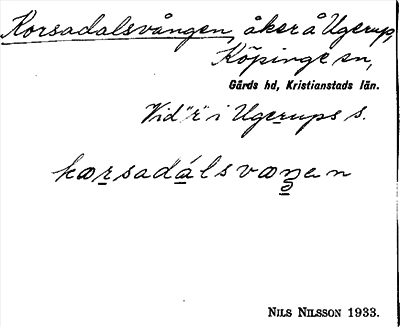 Korsadalsvången, åker å Ugerup,
Köpinge sn,
Gärds hd, Kristianstads län.
Vid "r" i Ugerups s.
kørsadálsvøŋan
NILS NILSSON 1933.